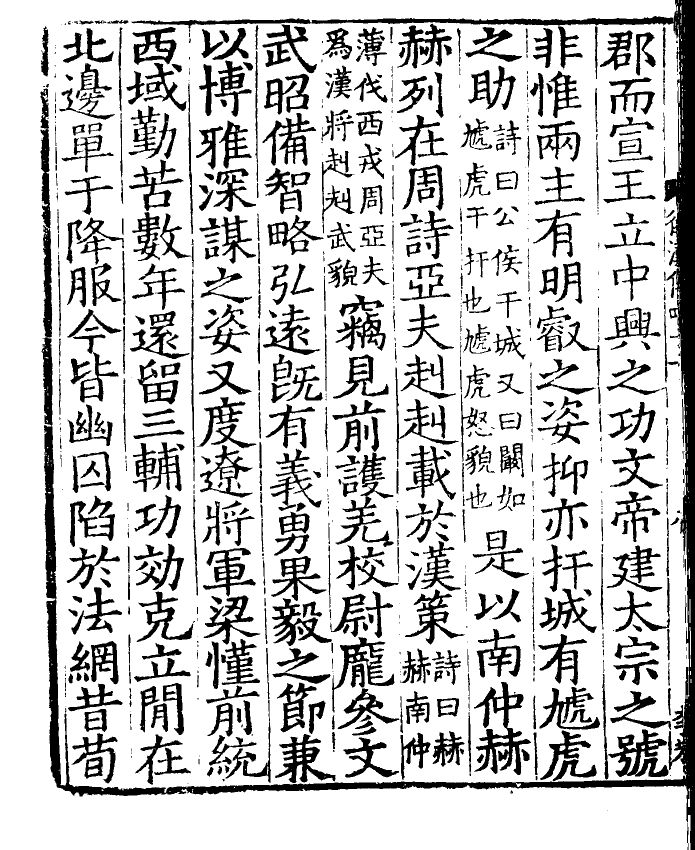 郡而宣王立中興之功文帝建太宗之號
非惟兩主有明叡之姿抑亦扞城有虓虎
之助詩曰公侯干城又曰闞如虓虎干扞也虓虎怒貌也是以南仲赫
赫列在周詩亞夫赳赳載於漢策詩曰赫赫南仲
薄伐西戎周亞夫爲漢將赳赳武貌竊見前護羌校尉龐參文
武昭備智略弘遠旣有義勇果毅之節兼
以博雅深謀之姿又度遼將軍梁慬前統
西域勤苦數年還留三輔功効克立閒在
北邊單于降服今皆幽囚陷於法網昔荀